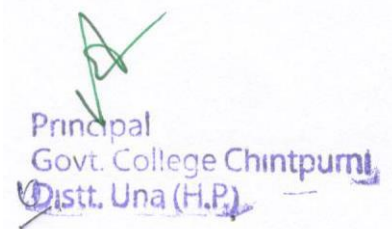 Principal
Govt. College Chintpurni,
Distt. Una (H.P.)